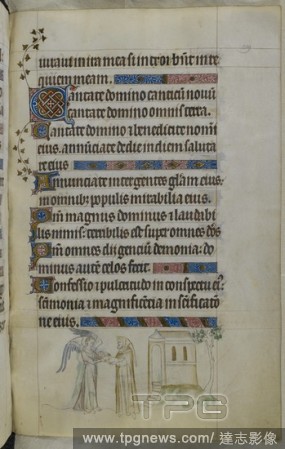 iuraui in ira mea si introibūt in re
quiem meam.
Cantate domino canticū nouū
cantate domino omnis terra.
Cantate domino ⁊ benedicite nomi
eius. annūciate de die in diem saluta
re eius
Annunciate inter gentes glām eius.
in omnib; populis mirabilia eius.
Qm̄ magnus dominus ⁊ laudabi
lis nimis. terribilis est super omnes deos
Qm̄ omnes dii gencium demonia: do
minus autē celos fecit.
Confessio ⁊ pulcritudo in conspectu ei᾿
⁊ magnificencia in scificatō
ne eius.
TPG
www.tpgnews.com/達志影像